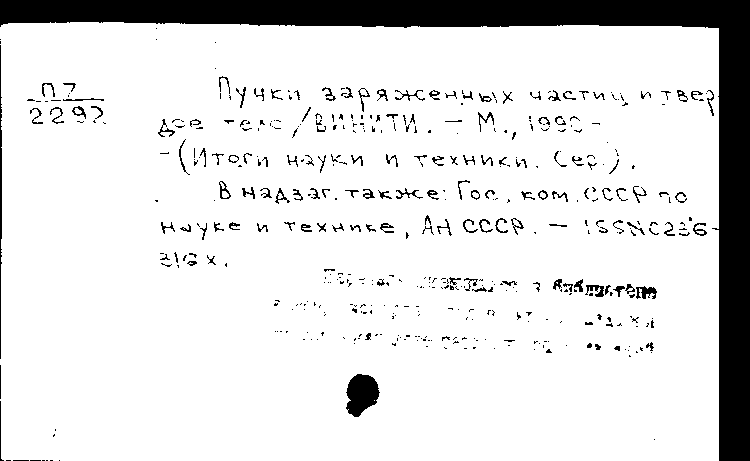 П7
2297
Пучки заряженных частиц и твер
дое тело / ВИНИТИ. – М., 1990 –
– (Итоги науки и техники. Сер.).
В надзаг. также: Гос. ком. СССР по
науке и технике, АН СССР. – ISSN 0236-
316x.
в библиотеке